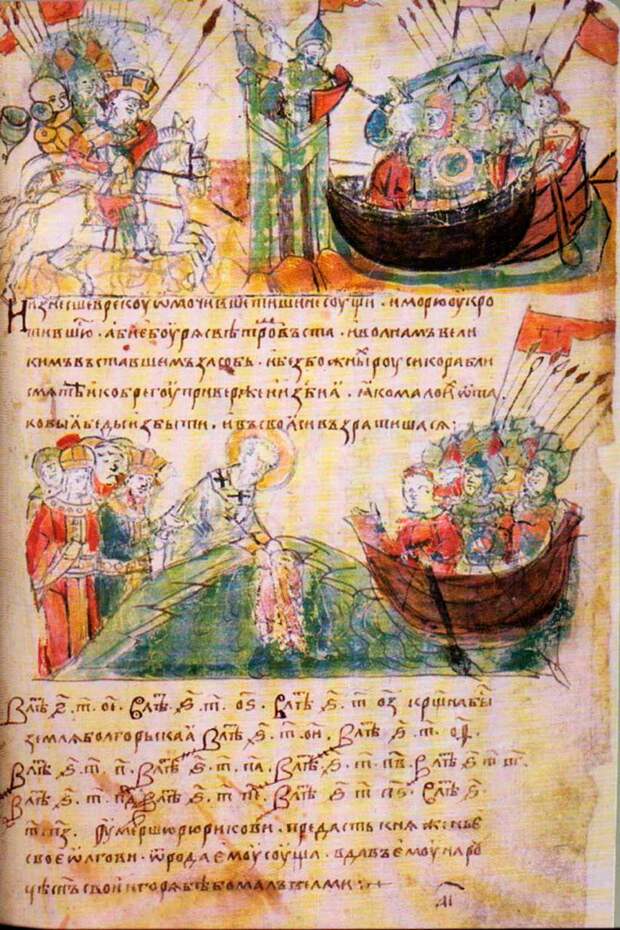 Ни изнесше в рекоу ѡмочивши тишине соущи . и морю оукро
тившюⷭ . абие боурѧ с вѣтроⷨ въста . и волнамъ вели
кимъ въставшемъ засобь . и безбожныⷯ роуси корабли
смѧте . и к брегоу приверже и изби ꙗ . ꙗко мало иⷯ ѿ та
ковыѧ беды избыти . и въ своѧси възратишасѧ :
В лѣⷮ ҂ѕ҃ . т҃ . ое҃ . В лѣⷮ ҂ѕ҃ . т҃ . оѕ҃ . В лѣⷮ ҂ѕ҃ . т҃ . оз҃ крⷭщна быⷭ
землѧ болгорьскаѧ В лѣⷮ ҂ѕ҃ . т҃ . ои҃ . В лѣⷮ ҂ѕ҃ . т҃ . оѳ҃ .
В лѣⷮ ҂ѕ҃ . т҃ . п҃ . В лѣⷮ ҂ѕ҃ . т҃ . па҃ . В лѣⷮ ҂ѕ҃ . т҃ . пв҃ . В лѣⷮ ҂ѕ҃ . т҃ . пг҃ .
В лѣⷮ ҂ѕ҃ . т҃ . пд҃ . В лѣⷮ ҂ѕ҃ . т҃ . пе҃ . В лѣⷮ ҂ѕ҃ . т҃ . пѕ҃ . В лѣⷮ ҂ѕ҃ .
т҃ . пз҃ . Оумершю рюрикови . предасть кнѧженье
свое ѡлгови . ѿ рода емоу соуща . вдавъ емоу на роу
цѣ сн҃ъ свои игорѧ бѣ бо малъ велми :